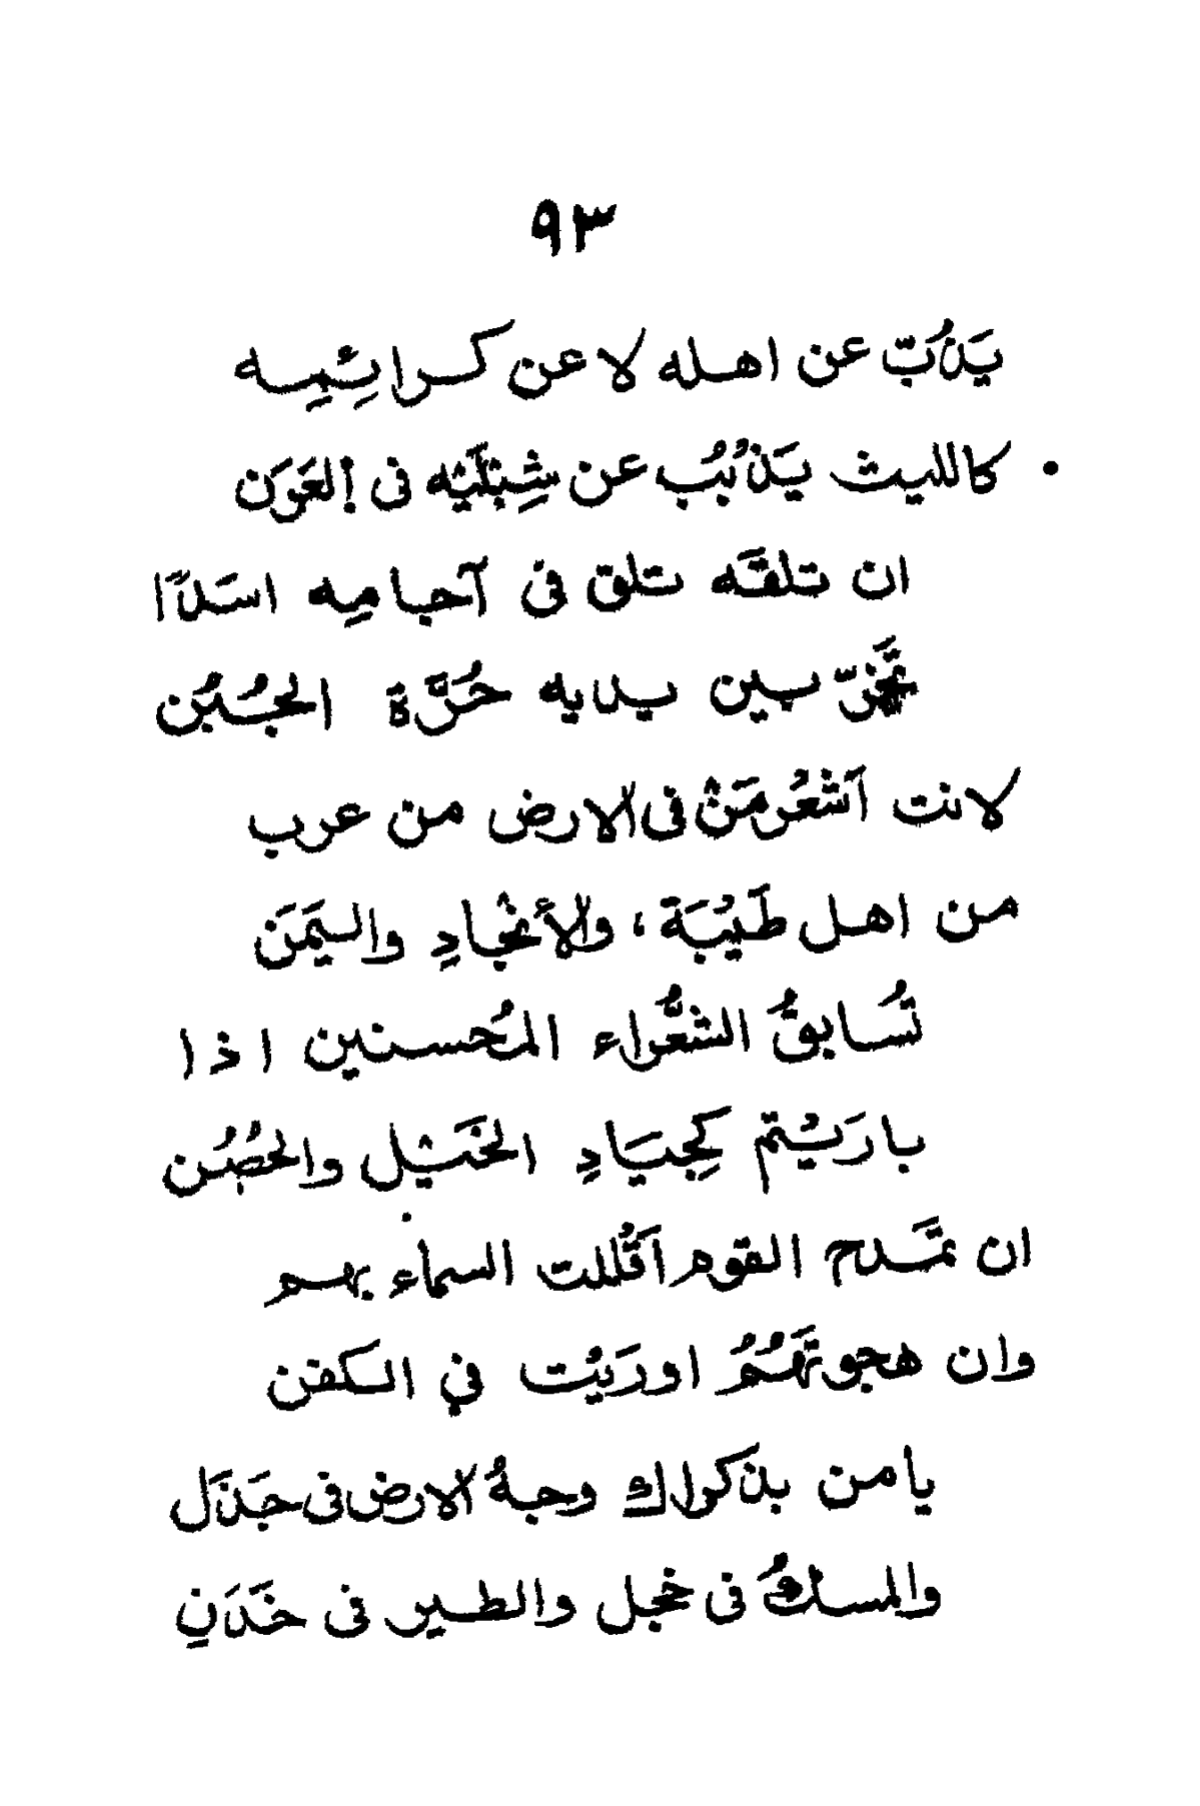 ٩٣
يَذُبّ عن اهله لا عن كرائِمِه
• كالليث يَذْبُبُ عن شِبْلَيْه فى العَوَن
ان تلقَه تلق فى آجامِه اسَدًا
تَخِرّ بين يدايه حُرَّة الجُبُن
لانت اَشْعُر مَنْ فى الارض من عرب
من اهل طَيْبَة، والأنْجادِ واليَمَن
تُسَابقُ الشُّعَراء المُحسنين اذا
بارَيْتم كَجِيَادِ الخَيْل والحُصُن
ان تمَدح القوم اَقُلت السماء بهم
وان هجوتَهُمُ اورَيْت في الكفن
يامن بذكراك وجهُ الارض فى جَذَل
والمسكُ فى خجل والطير فى خَدَنِ